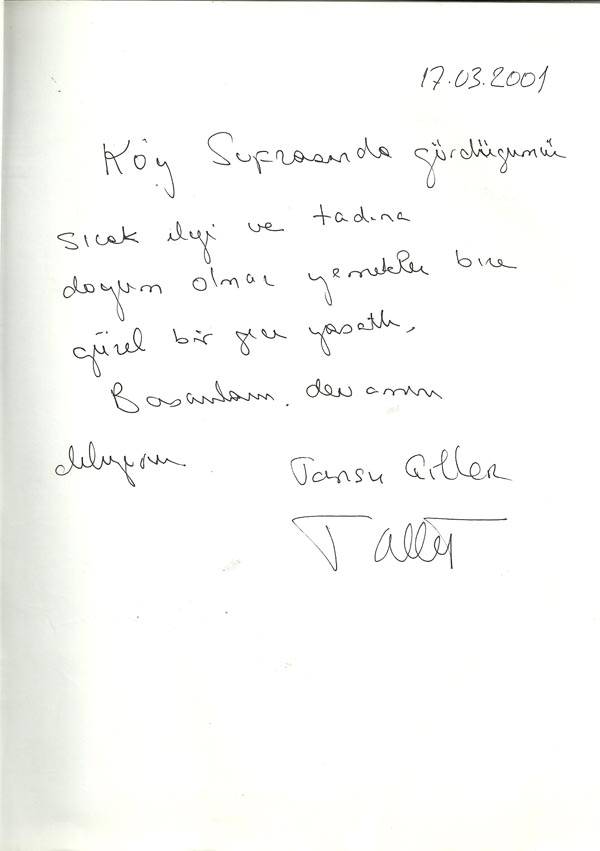 17.03.2001
Köy Sofrasında gördüğümüz
sıcak ilgi ve tadına
doyum olmaz yemekler bize
güzel bir gece yaşattı,
Başarıların devamını
diliyorum
Tansu Çiller